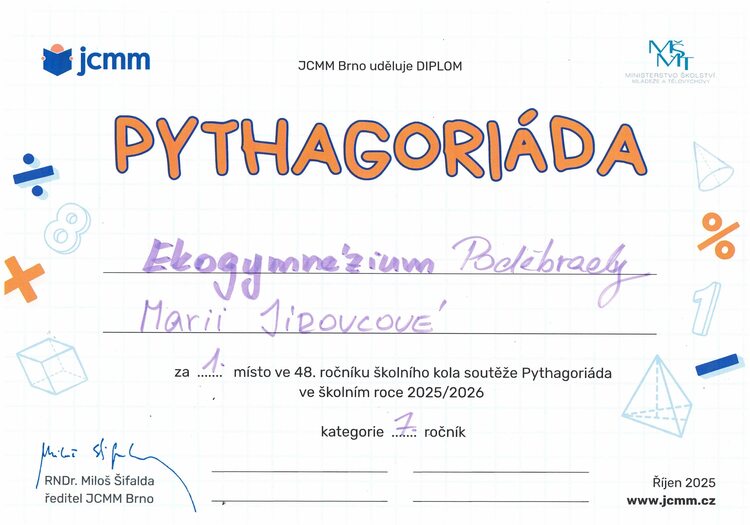 jcmm
JCMM Brno uděluje DIPLOM
MŠMT
MINISTERSTVO ŠKOLSTVÍ,
MLÁDEŽE A TĚLOVÝCHOVY
PYTHAGORIÁDA
8
Ekogymnázium Poděbrady
%
1
Marii JIROVCOVÉ
za 1. místo ve 48. ročníku školního kola soutěže Pythagoriáda
ve školním roce 2025/2026
kategorie 7. ročník
Miloš Šifalda
RNDr. Miloš Šifalda
ředitel JCMM Brno
Říjen 2025
www.jcmm.cz